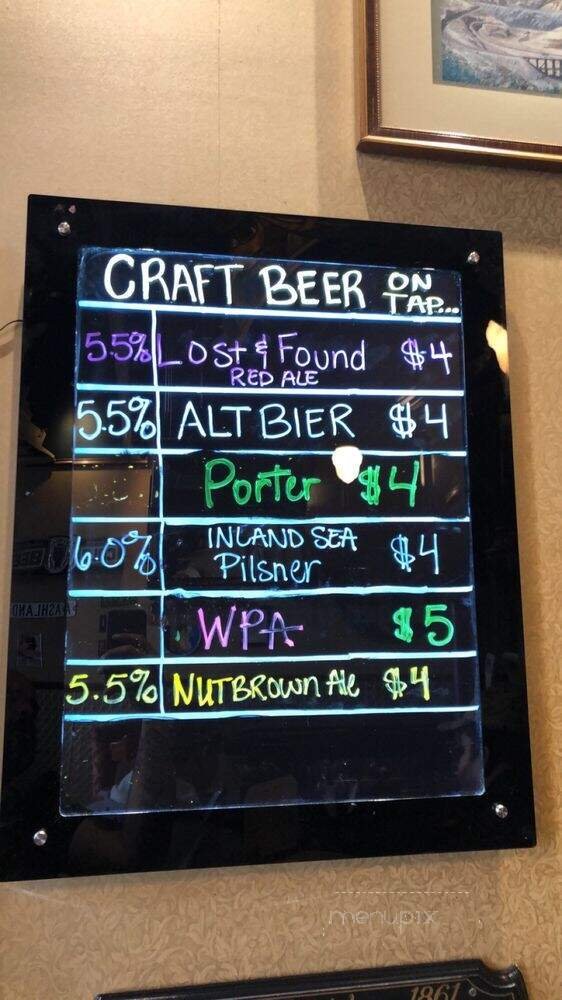 CRAFT BEER ON TAP...
5.5% Lost & Found $4
RED ALE
5.5% ALTBIER $4
Porter $4
6.0% INLAND SEA Pilsner $4
WPA $5
5.5% NUTBROWN Ale $4
ASHLAND
menupix
1861